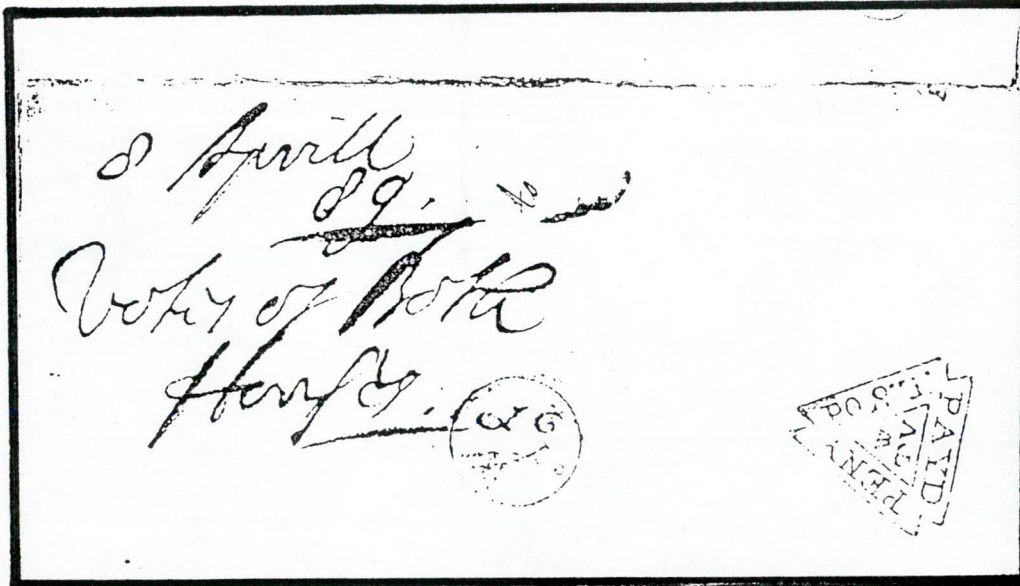 8 Aprill
89.
Votes of Both
Houses.
PENY
PAYD